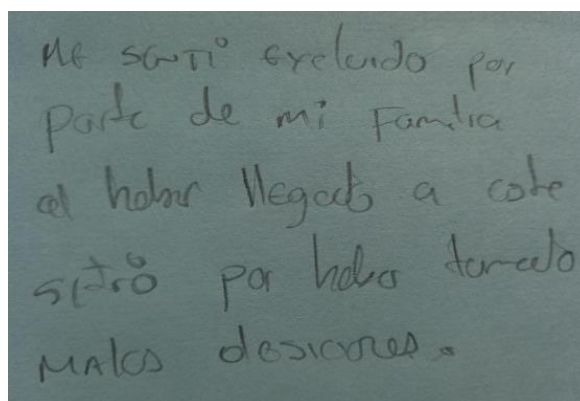 Me sentí excluido por
parte de mi familia
al haber llegado a este
sitio por haber tomado
malas desiciones.